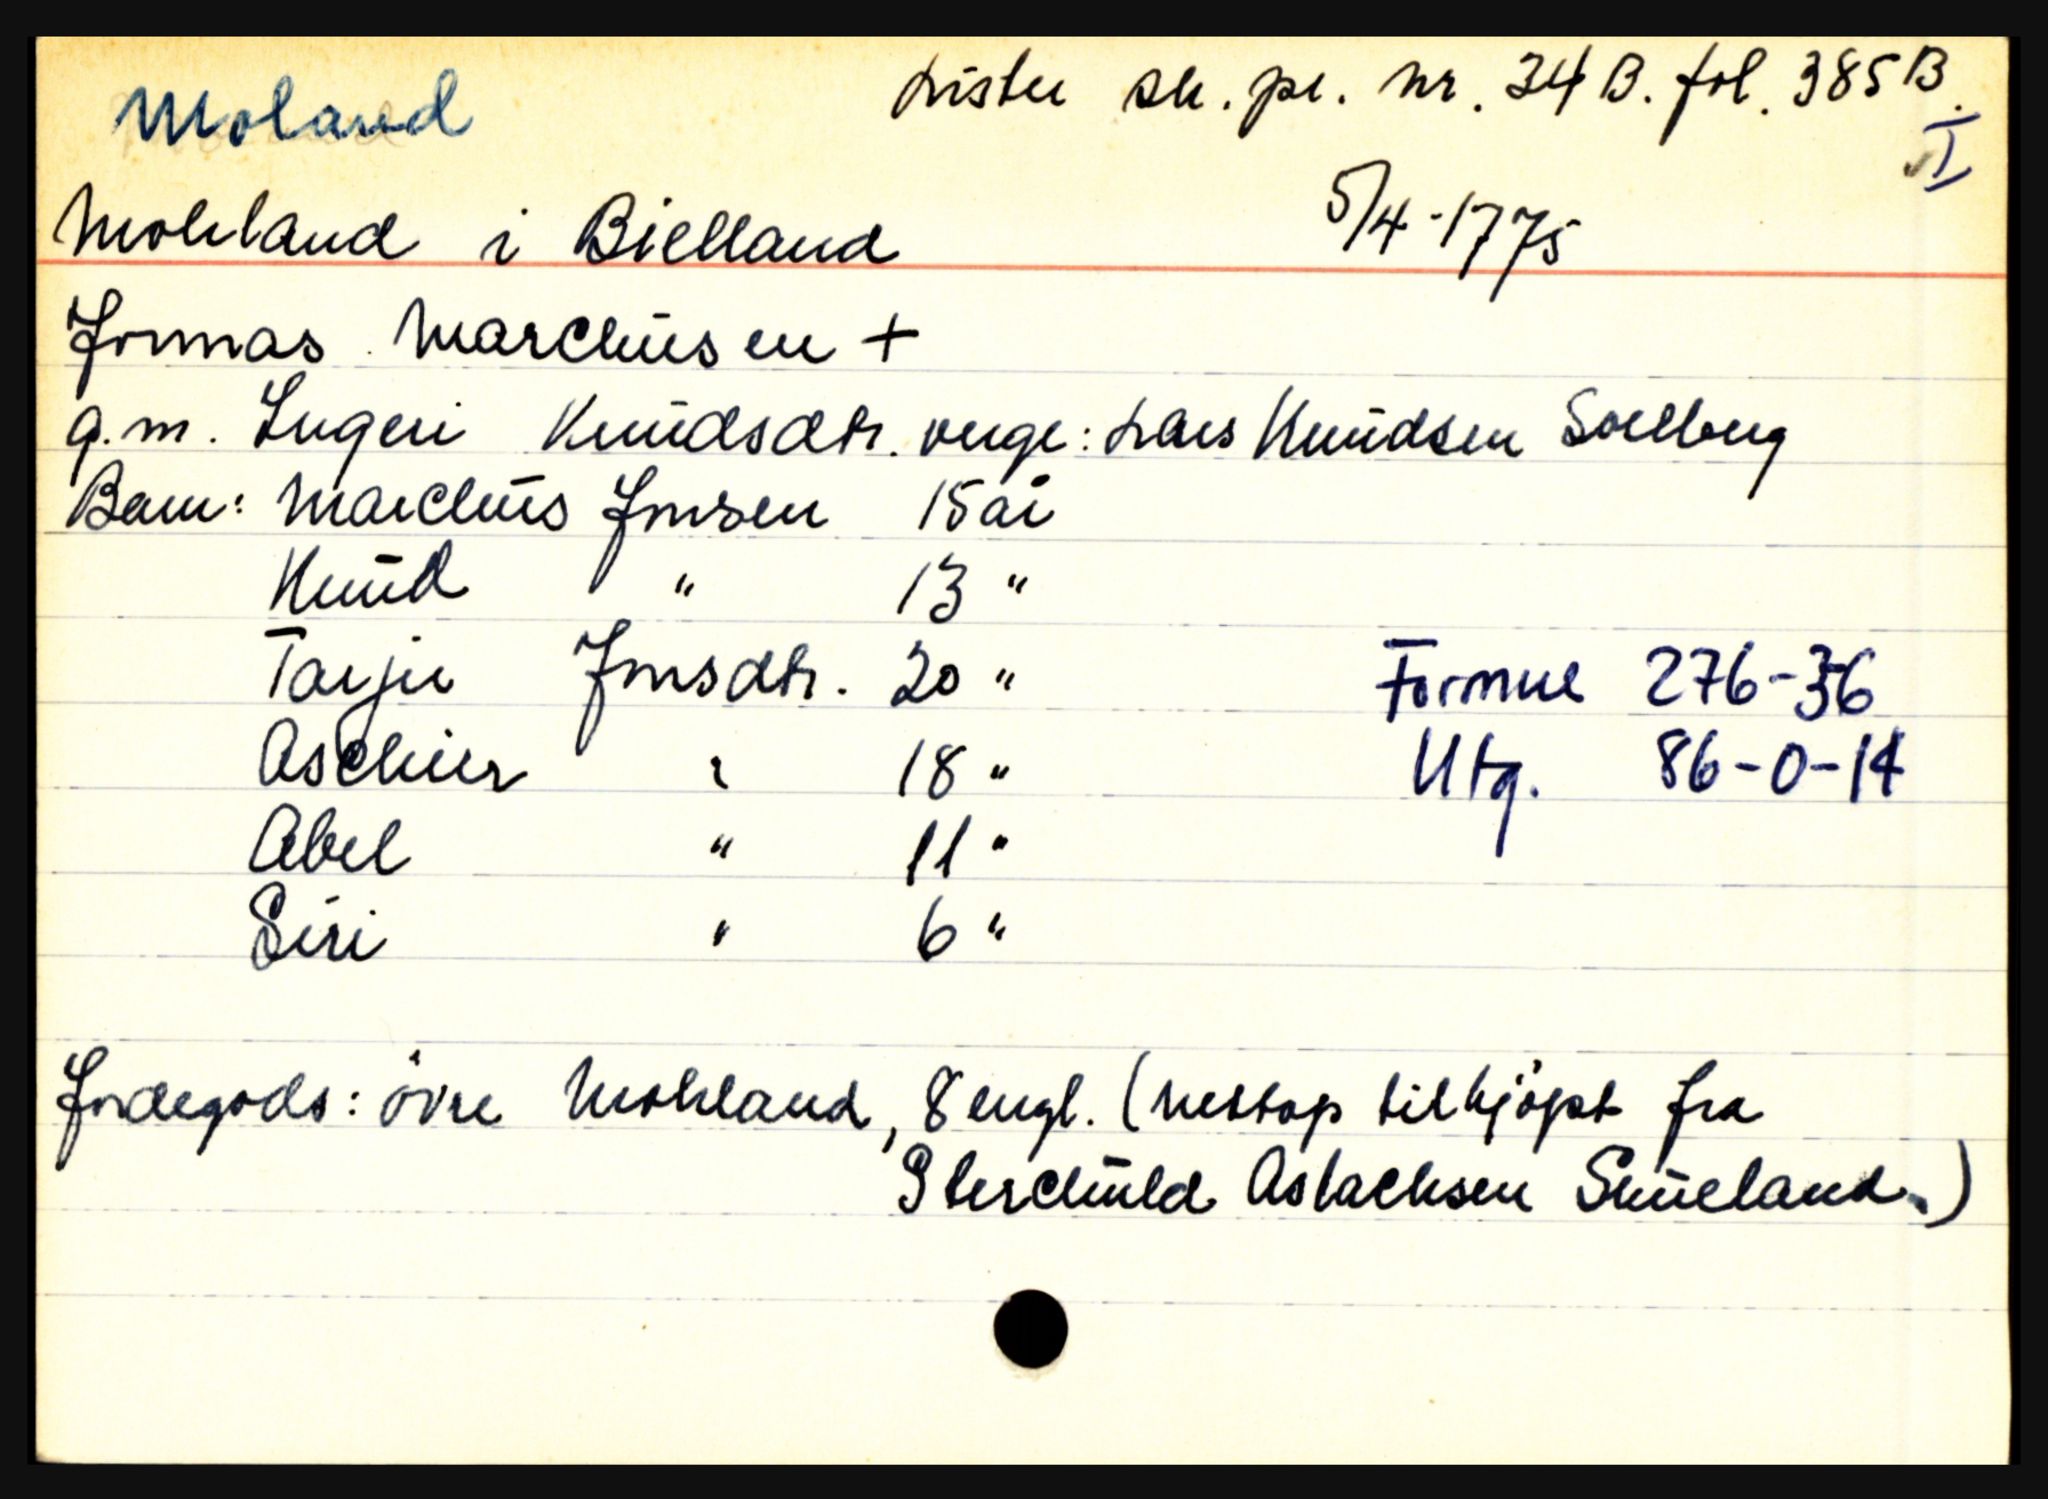 Moland
Lister sk. pr. nr. 34 B. fol. 385 B.
I
Mohland i Bielland 5/4-1775
Jonnas Marchusen +
g.m. Ingeri Knudsdtr. verge: Lars Knudsen Solberg
Barn: Marchus Jonsen 15 år
Knud " 13 "
Tarju Jonsdtr. 20 "
Formue 276-36
Aschier " 18 "
Utg. 86-0-14
Abel " 11 "
Siri " 6 "
Jordegods: övre Mohland, 8 engl. (nettop tilkjöpt fra
Sterchuld Aslachsen Skueland.)